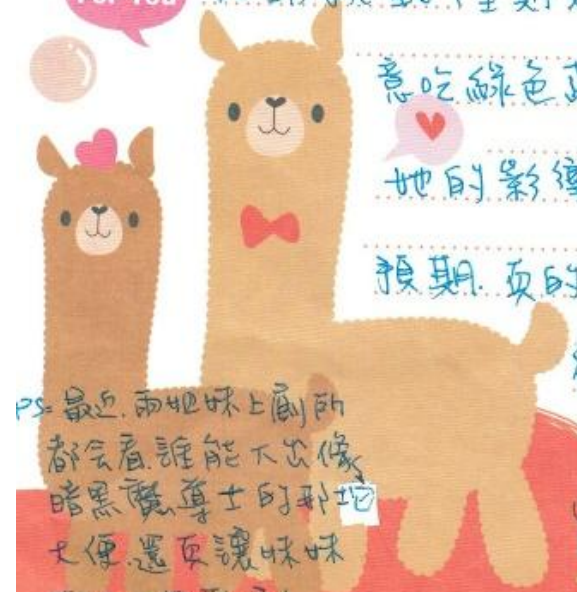 For You
意吃綠色
她的影響
預期.真的
PS: 最近.兩姐妹上廁所
都会看誰能大出像
暗黑魔導士的那坨
大便.還真讓妹妹